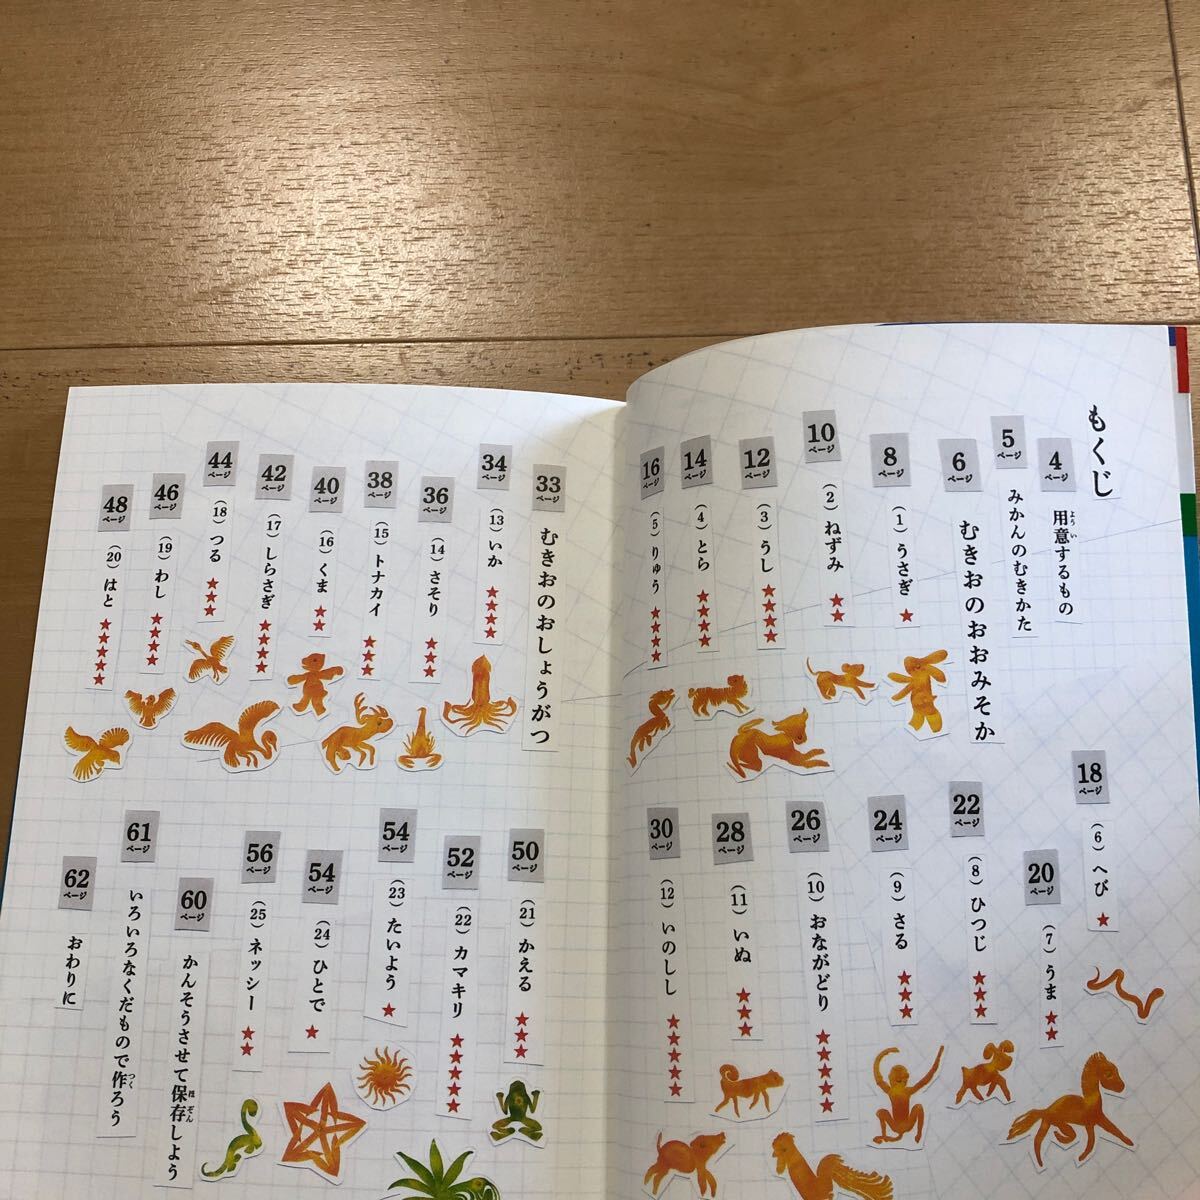 もくじ
4ページ 用意するもの
5ページ みかんのむきかた
6ページ むきおのおおみそか
8ページ (1) うさぎ ★
10ページ (2) ねずみ ★★
12ページ (3) うし ★★★
14ページ (4) とら ★★★★
16ページ (5) りゅう ★★★★★
18ページ (6) へび ★
20ページ (7) うま ★★
22ページ (8) ひつじ ★★★
24ページ (9) さる ★★★
26ページ (10) おながどり ★★★★★
28ページ (11) いぬ ★★★
30ページ (12) いのしし ★★★★★
33ページ むきおのおしょうがつ
34ページ (13) いか ★★★★
36ページ (14) さそり ★★
38ページ (15) トナカイ ★★★
40ページ (16) くま ★★
42ページ (17) しらさぎ ★★★★
44ページ (18) つる ★★★
46ページ (19) わし ★★★★
48ページ (20) はと ★★★★★
50ページ (21) かえる ★★★
52ページ (22) カマキリ ★★★★★
54ページ (23) たいよう ★
54ページ (24) ひとで ★
56ページ (25) ネッシー ★★
60ページ かんそうさせて保存しよう
61ページ いろいろなくだもので作ろう
62ページ おわりに